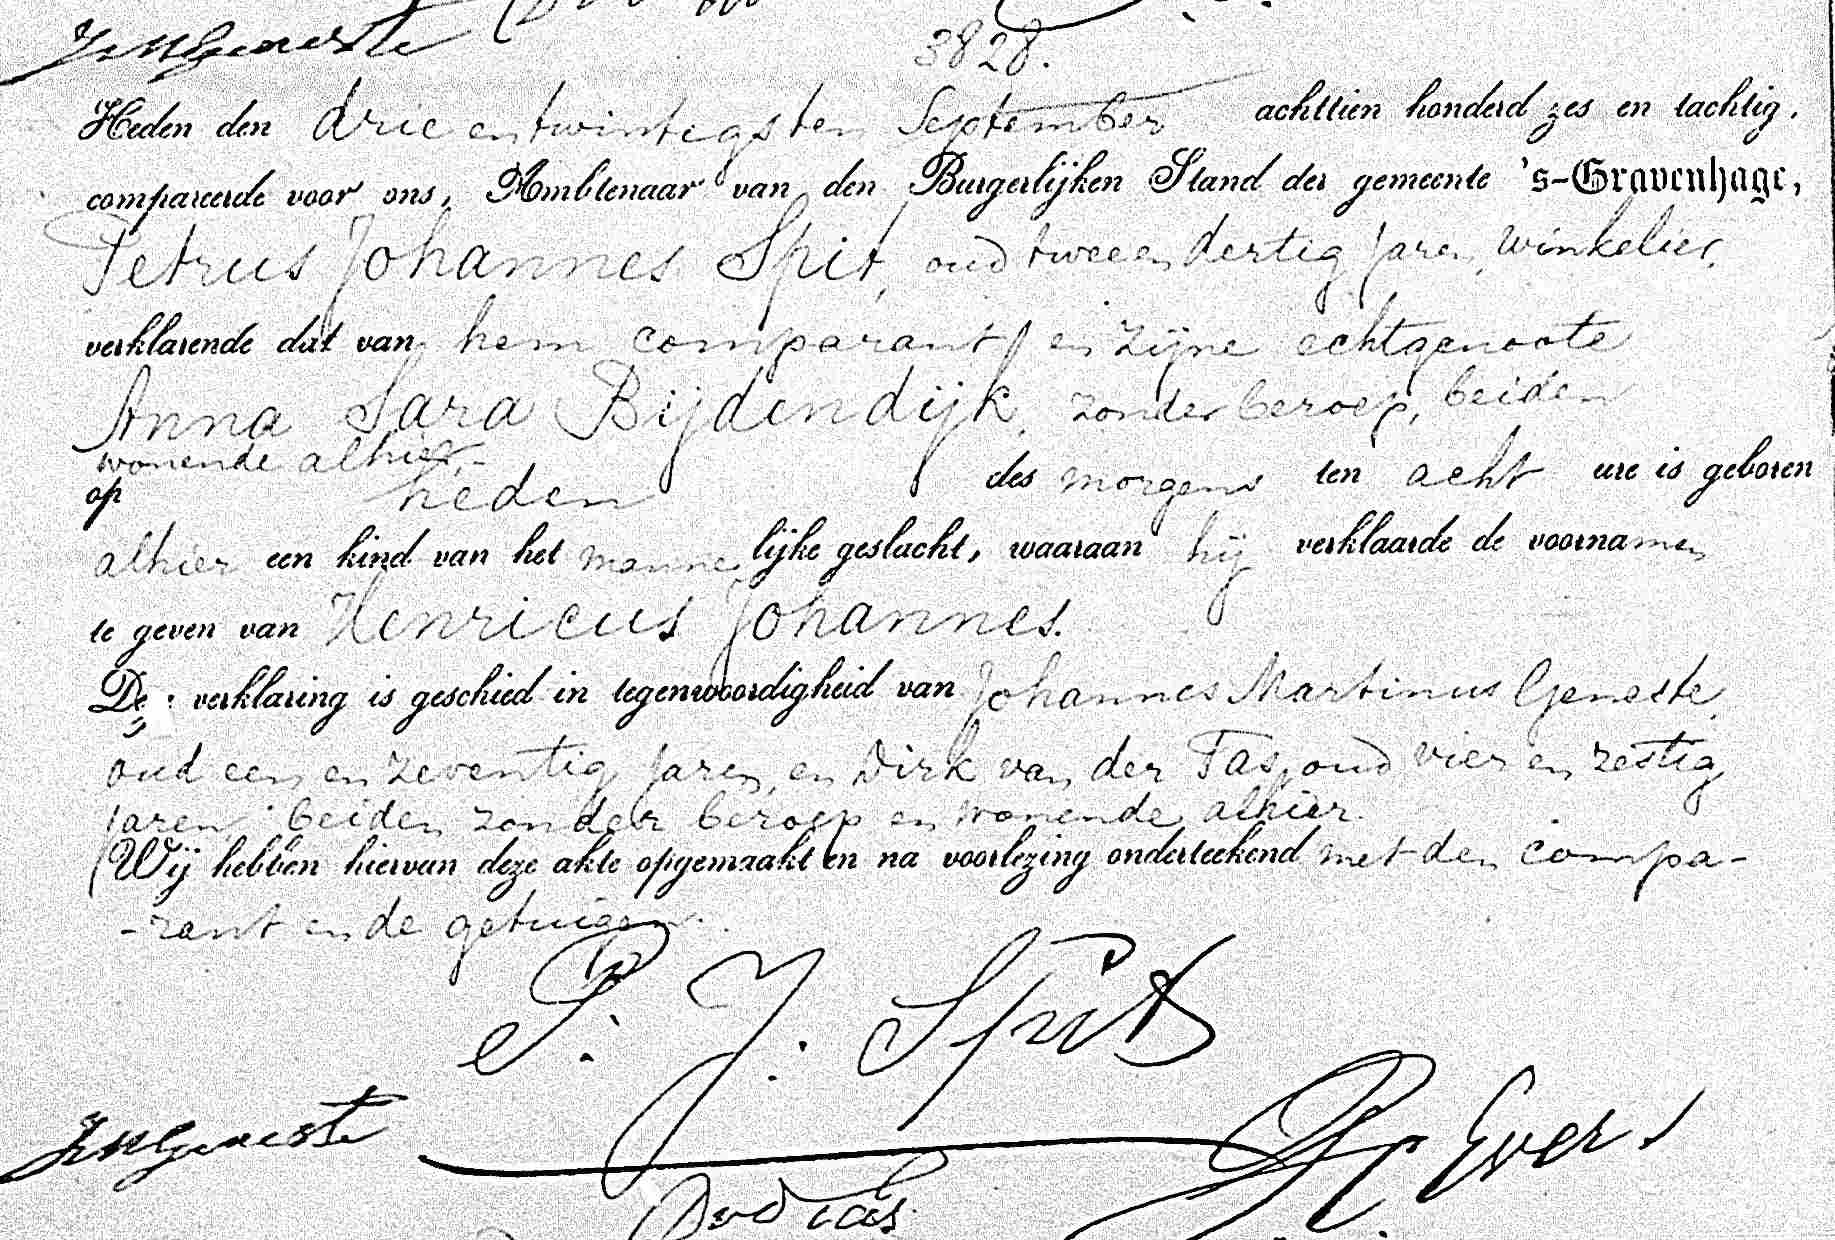 JMGeneste
3828.
Heden den drie en twintigsten September achttien honderd zes en tachtig,
compareerde voor ons, Ambtenaar van den Burgerlijken Stand der gemeente 's-Gravenhage,
Petrus Johannes Spit, oud twee en dertig jaren, winkelier,
verklarende dat van hem comparant en zijne echtgenoote
Anna Sara Bijdendijk, zonder beroep, beiden
wonende alhier,-
op heden des morgens ten acht ure is geboren
alhier een kind van het mannelijke geslacht, waaraan hij verklaarde de voornamen
te geven van Henricus Johannes.
De verklaring is geschied in tegenwoordigheid van Johannes Martinus Geneste,
oud een en zeventig jaren, en Dirk van der Tas, oud vier en zestig
jaren, beiden zonder beroep en wonende alhier.
Wij hebben hiervan deze akte opgemaakt en na voorlezing onderteekend met den compa-
-rant en de getuigen.
P. J. Spit
JMGeneste
Evers
DvdTas